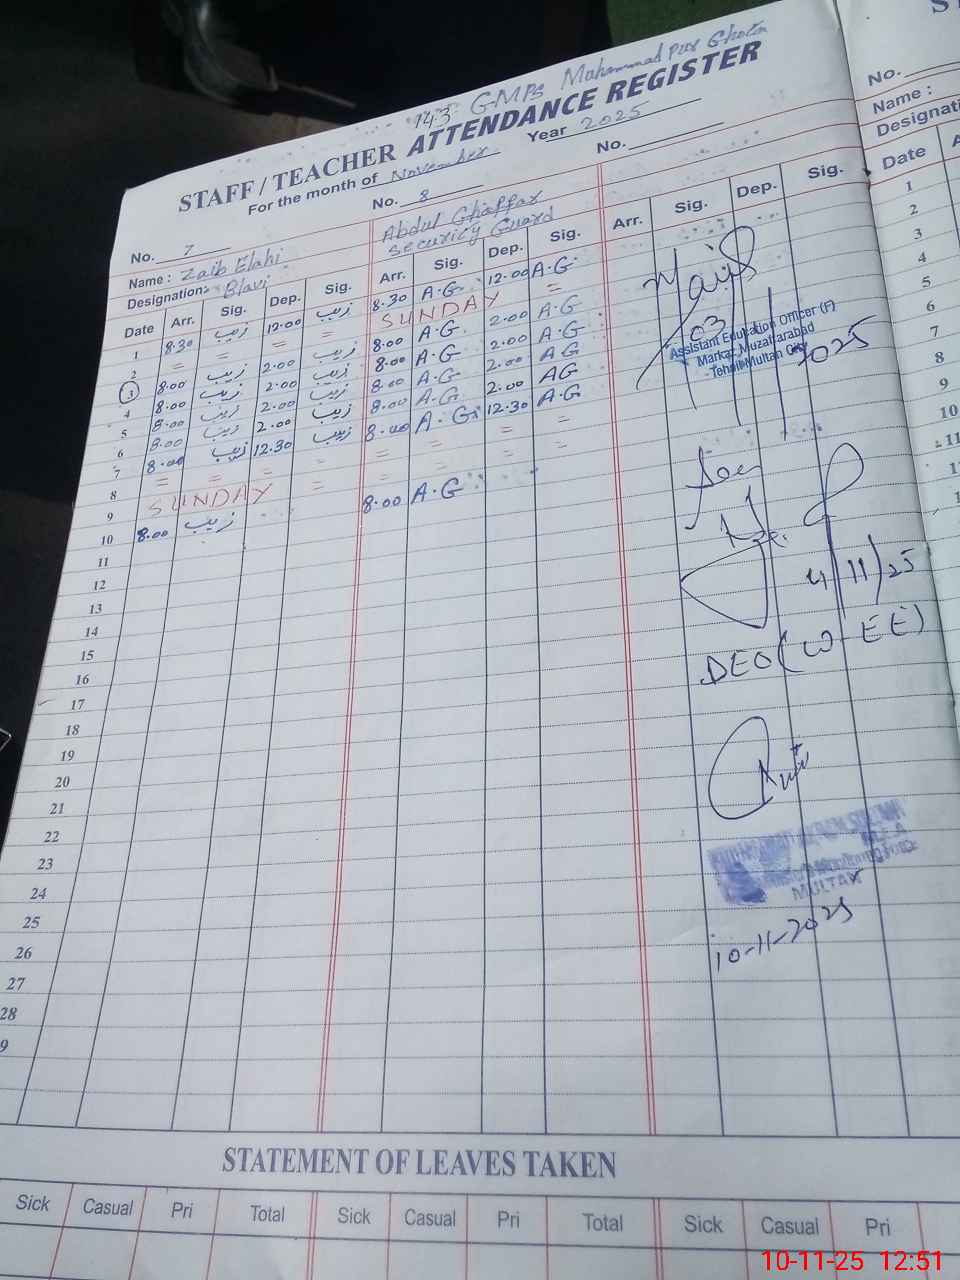 143 GMPS Muhammad Pur Ghota
STAFF / TEACHER ATTENDANCE REGISTER
For the month of November Year 2025
No. 7 No. 8 No.
Name : Zaib Elahi Abdul Ghaffar
Designation: Security Guard
Date Arr. Sig. Dep. Sig. Arr. Sig. Dep. Sig. Arr. Sig. Dep. Sig.
1 8.30 زیب 12.00 زیب 8.30 A.G 12.00 A.G
2 = = = = SUNDAY =
3 8.00 زیب 2.00 زیب 8.00 A.G 2.00 A.G
4 8.00 زیب 2.00 زیب 8.00 A.G 2.00 A.G
5 8.00 زیب 2.00 زیب 8.00 A.G 2.00 AG
6 8.00 زیب 2.00 زیب 8.00 A.G 2.00 AG
7 8.00 زیب 12.30 زیب 8.00 A.G 12.30 A.G
8 = = = = = = = =
9 SUNDAY = = = = =
10 8.00 زیب 8.00 A.G
11
12
13
14
15
16
17
18
19
20
21
22
23
24
25
26
27
28
9
03
Assistant Education Officer (F)
Markaz Muzaffarabad
Tehsil Multan City
2025
Seen
4/11/25
DEO (W-EE)
MULTAN
10-11-2025
STATEMENT OF LEAVES TAKEN
Sick Casual Pri Total Sick Casual Pri Total Sick Casual Pri
S
No.
Name :
Designati
Date A
1
2
3
4
5
6
7
8
9
10
11
1
1
10-11-25 12:51